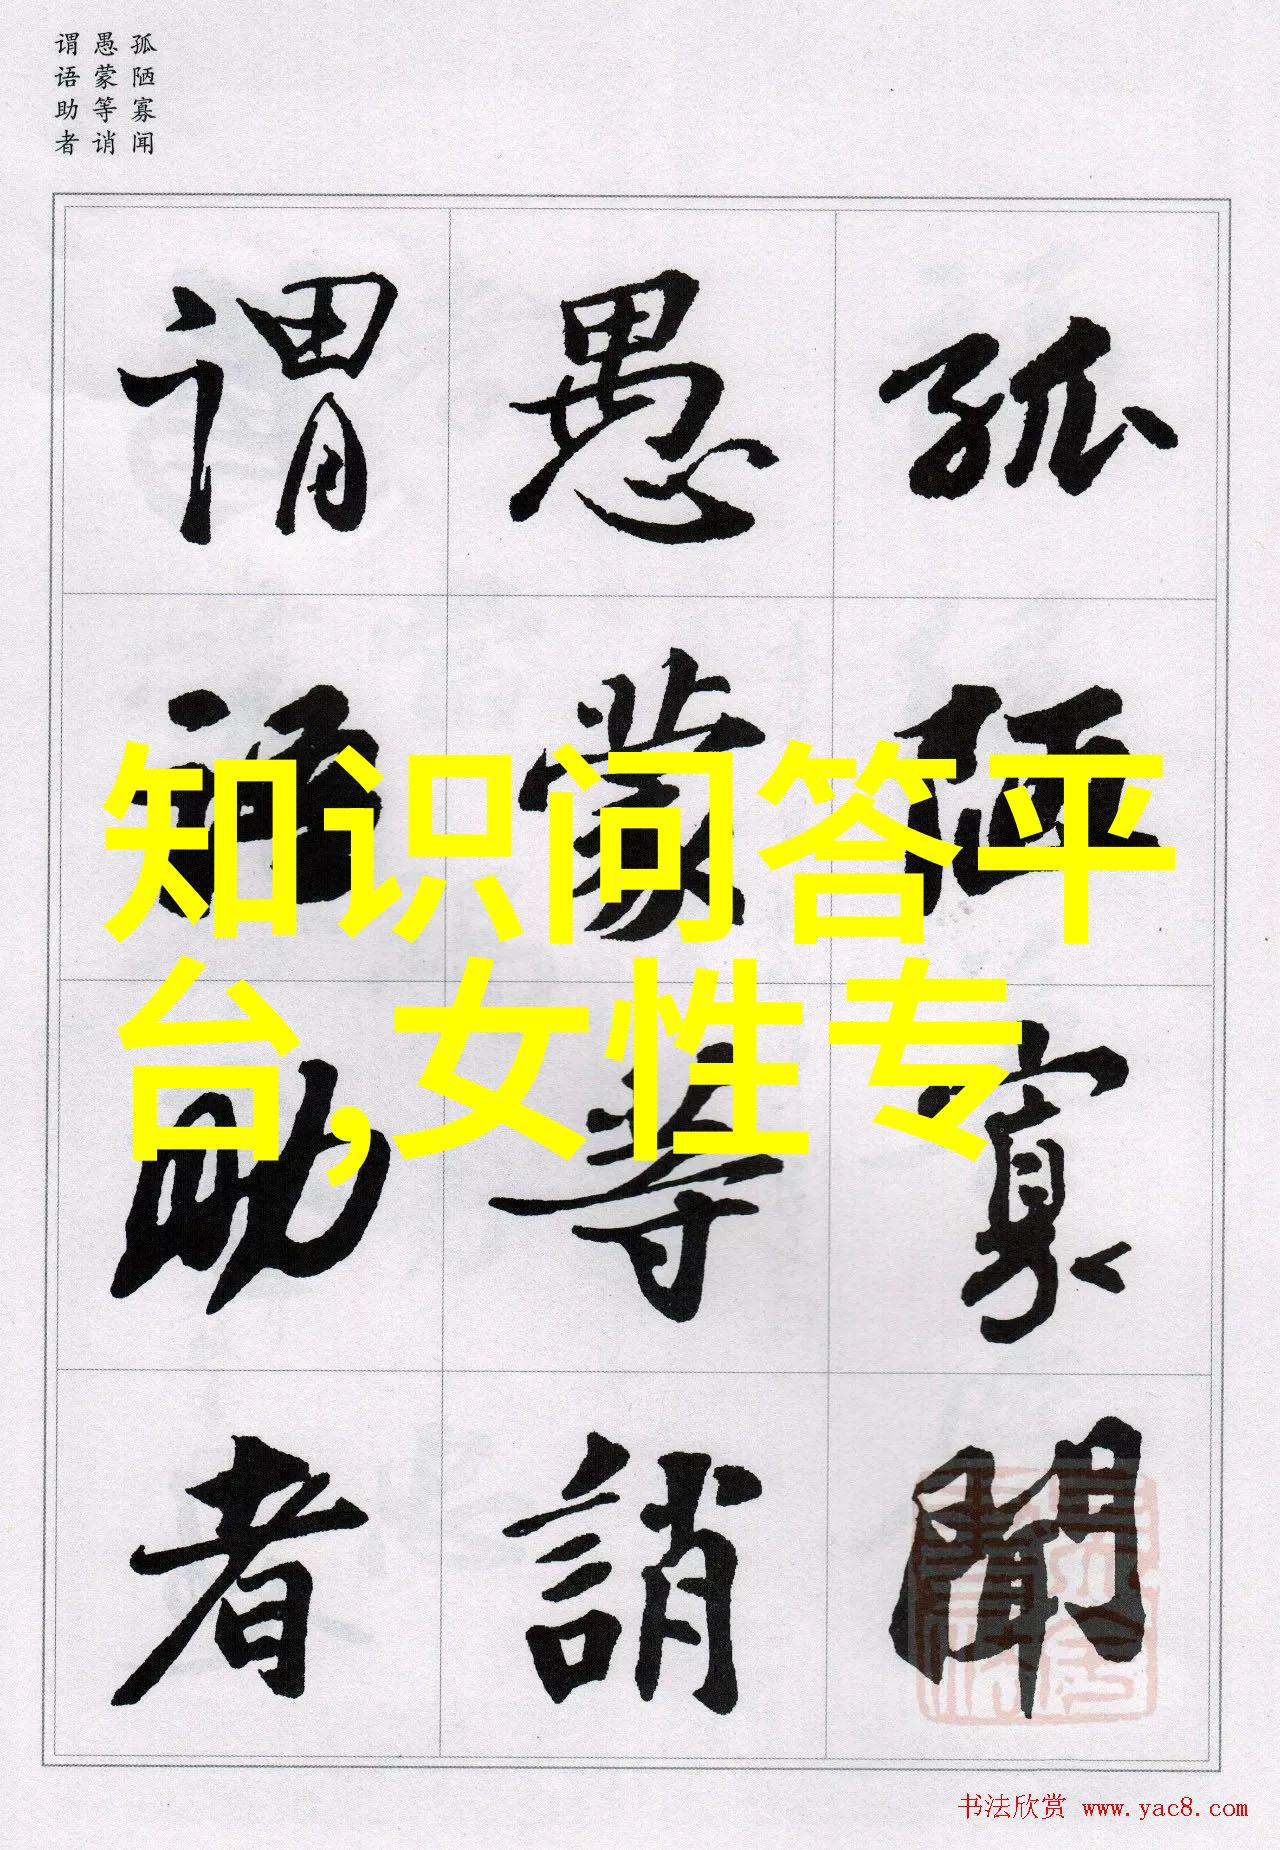 孤陋寡闻
愚蒙等诮
谓语助者
孤陋寡聞
愚蒙等誚
谓语助者
知识问答平
台,女性专
书法欣赏 www.yac8.com